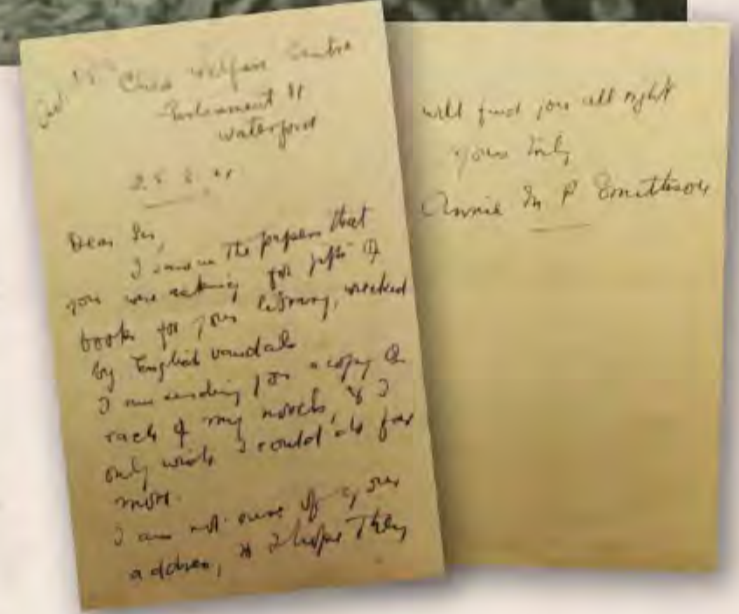 Child Welfare Centre
Parliament St
Waterford
Dear Sir,
I saw in the papers that
you were asking for gifts of
books for your library, wrecked
by English vandals
I am sending you a copy of
each of my novels & I
only wish I could do far
more.
I am not sure of your
address, & I hope they
will find you all right
Yours truly
Annie M P Smithson